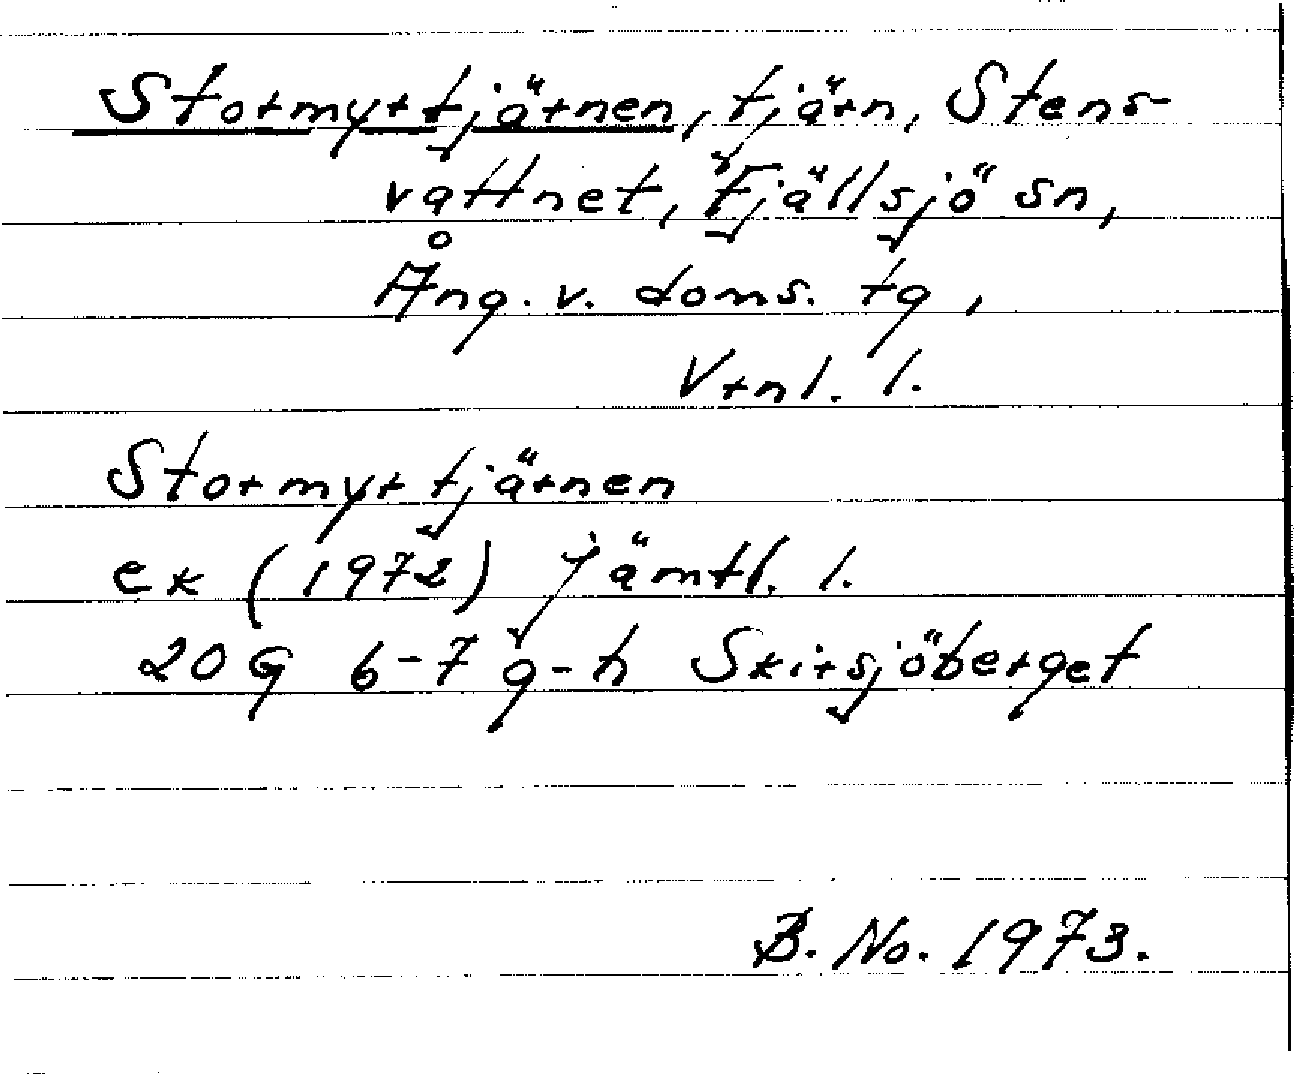 Stormyrtjärnen, tjärn, Stens-
vattnet, Fjällsjö sn,
Ång. v. doms. tg,
Vrnl. l.
Stormyrtjärnen
ek (1972) Jämtl. l.
20 G 6-7 g-h Skirsjöberget
B. No. 1973.